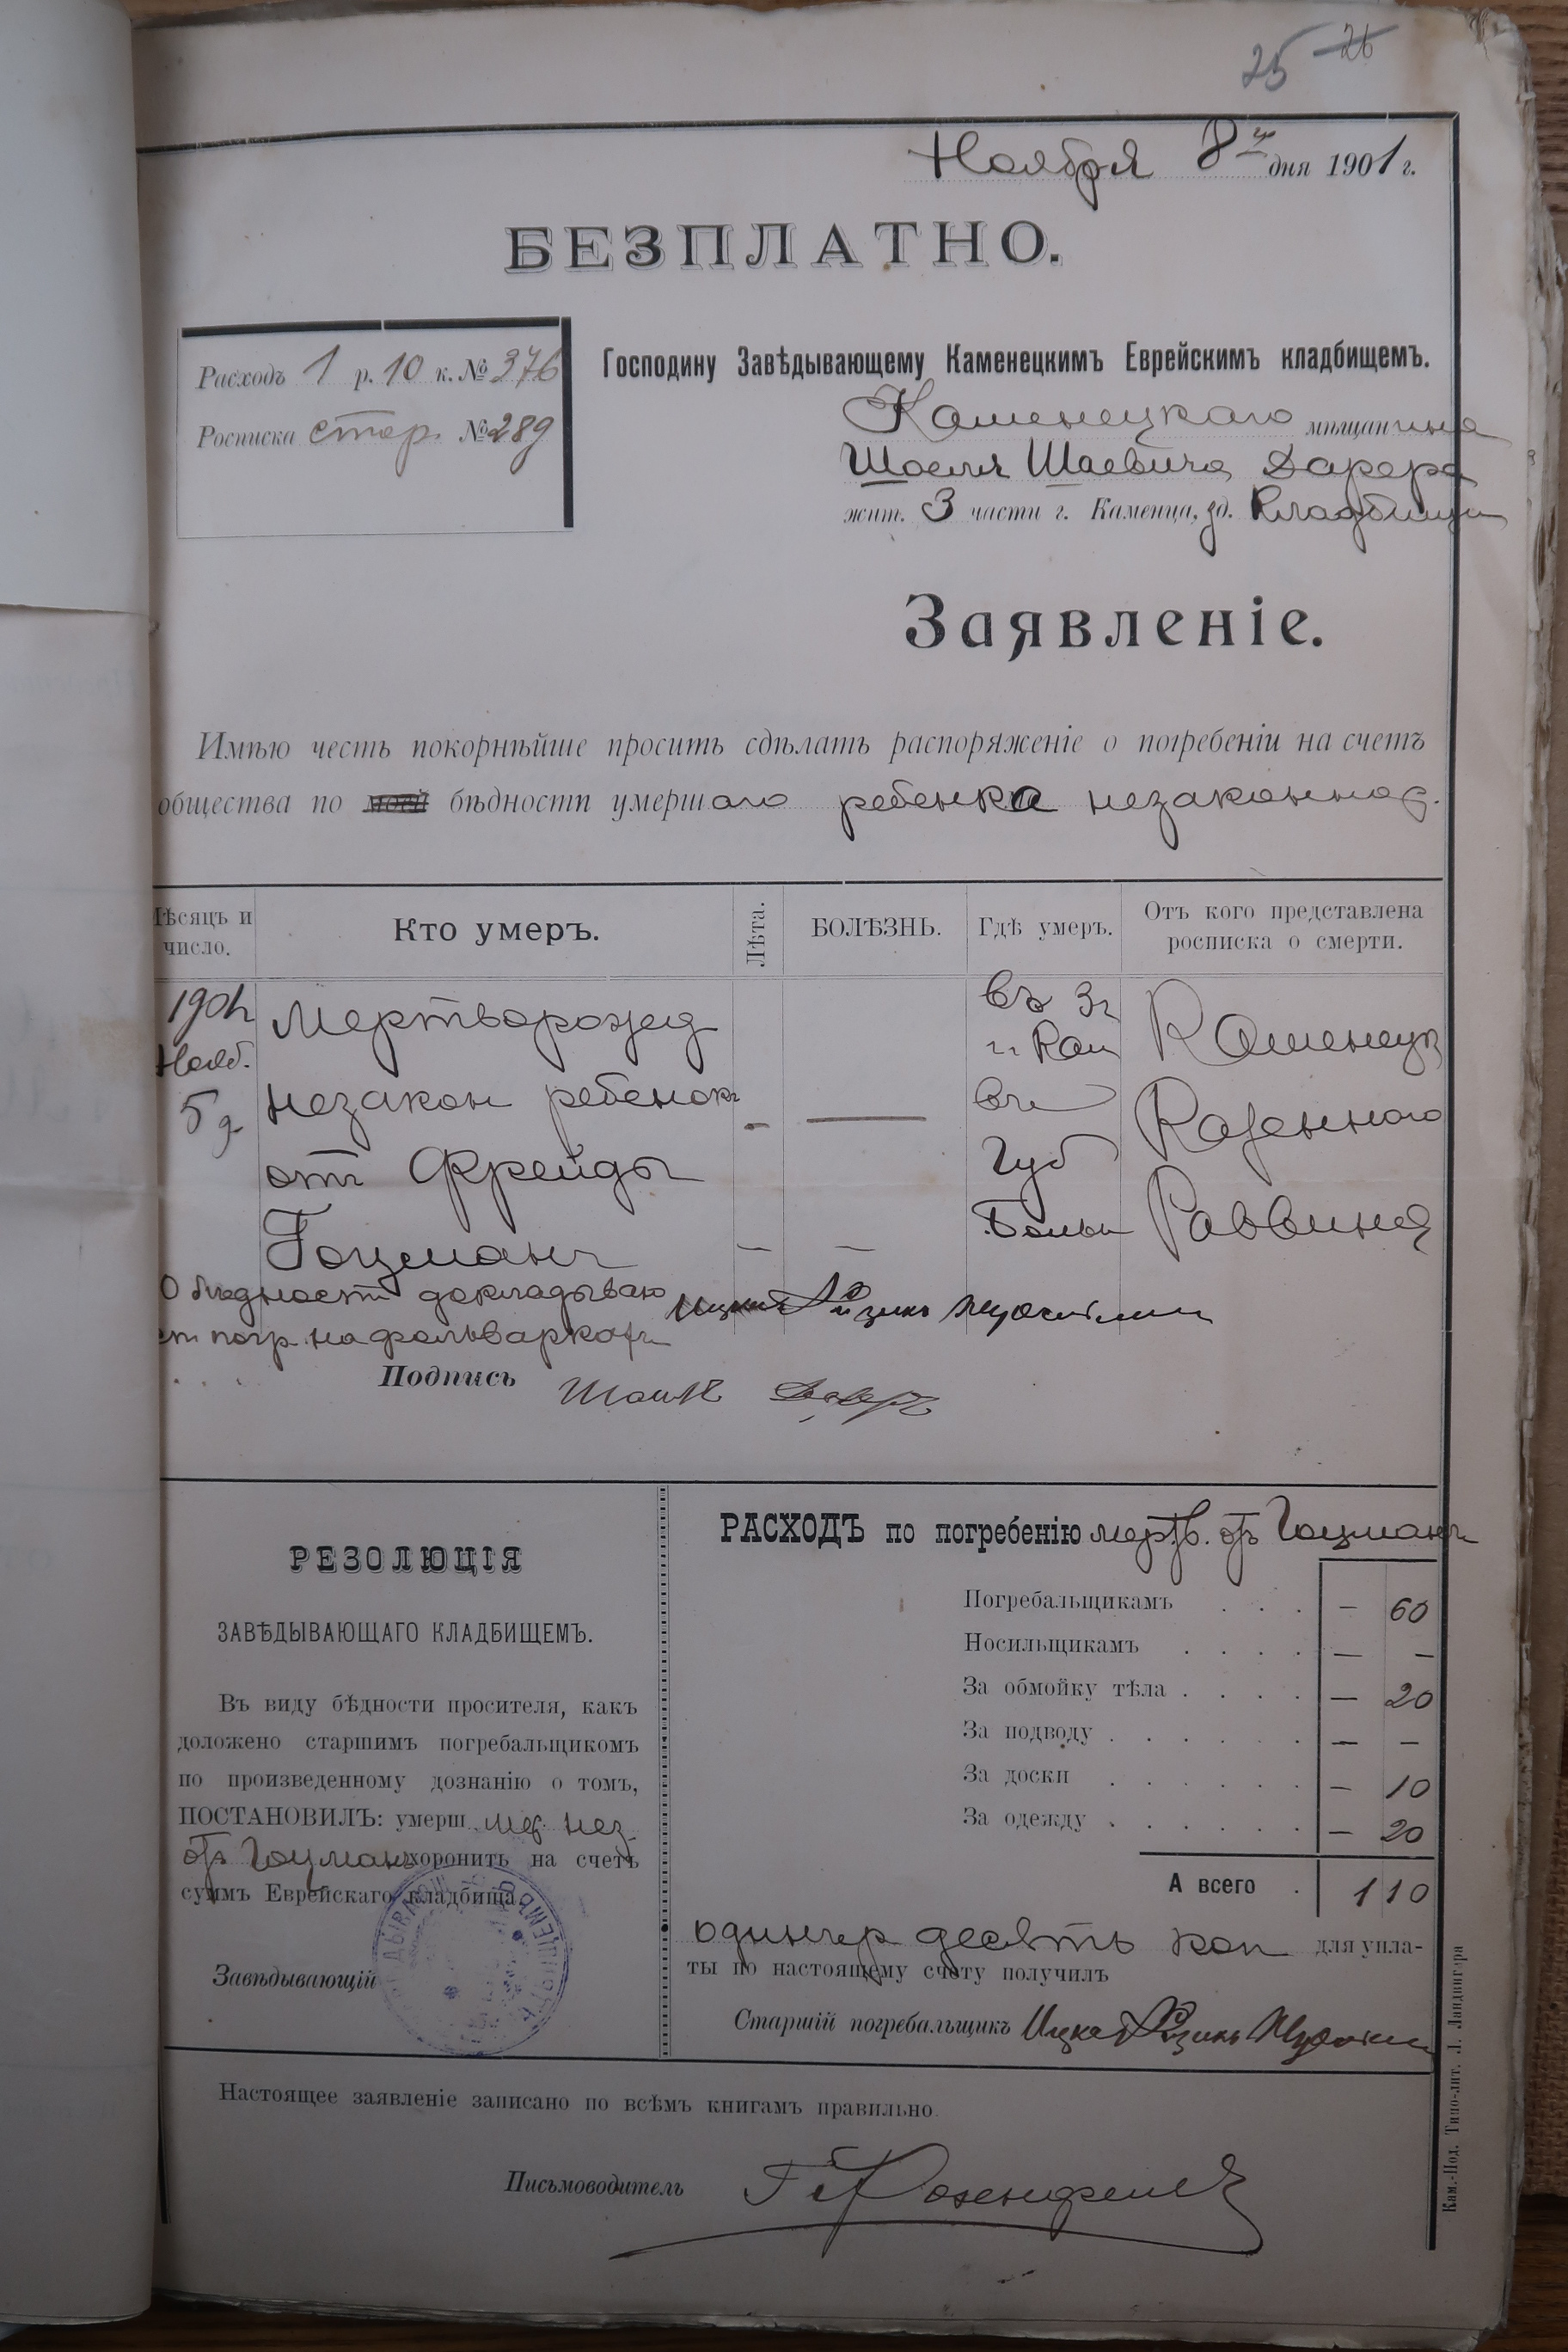 25 26
Ноября 8го дня 1901 г.
БЕЗПЛАТНО.
Расходъ 1 р. 10 к. № 376
Росписка стар. № 289
Господину Завѣдывающему Каменецкимъ Еврейскимъ кладбищемъ.
Каменецкаго мѣщанина
Шоеля Шаевича
жит. 3 части г. Каменца, зд. Кладбища
Заявленіе.
Имѣю честь покорнѣйше просить сдѣлать распоряженіе о погребеніи на счетъ
общества по моей бѣдности умершаго ребенка незаконнор.
Мѣсяцъ и число.
Кто умеръ.
Лѣта.
БОЛѢЗНЬ.
Гдѣ умеръ.
Отъ кого представлена росписка о смерти.
1901 Мертворожд въ 3ч Каменецк
Нояб. г. Кам
5 д незакон ребенокъ въ Казеннаго
отъ Фрейды Губ
Гоцманъ Больн Раввина
О бѣдности докладываю Ицко Айзикъ
погр. на фольваркахъ
Подпись
РЕЗОЛЮЦІЯ
ЗАВѢДЫВАЮЩАГО КЛАДБИЩЕМЪ.
Въ виду бѣдности просителя, какъ
доложено старшимъ погребальщикомъ
по произведенному дознанію о томъ,
ПОСТАНОВИЛЪ: умерш. мер нез
отъ Гоцманъ хоронить на счетъ
суммъ Еврейскаго кладбища.
Завѣдывающій
РАСХОДЪ по погребенію мертв. отъ Гоцманъ
Погребальщикамъ . . . — 60
Носильщикамъ . . . . — —
За обмойку тѣла . . . . — 20
За подводу . . . . . . — —
За доски . . . . . . — 10
За одежду . . . . . . — 20
А всего . 1 10
одинъ р десять коп для упла-
ты по настоящему счету получилъ
Старшій погребальщикъ Ицко Айзикъ
Настоящее заявленіе записано по всѣмъ книгамъ правильно.
Письмоводитель Розенфельд
Кам.-Под. Типо-лит. Л. Ландвигера